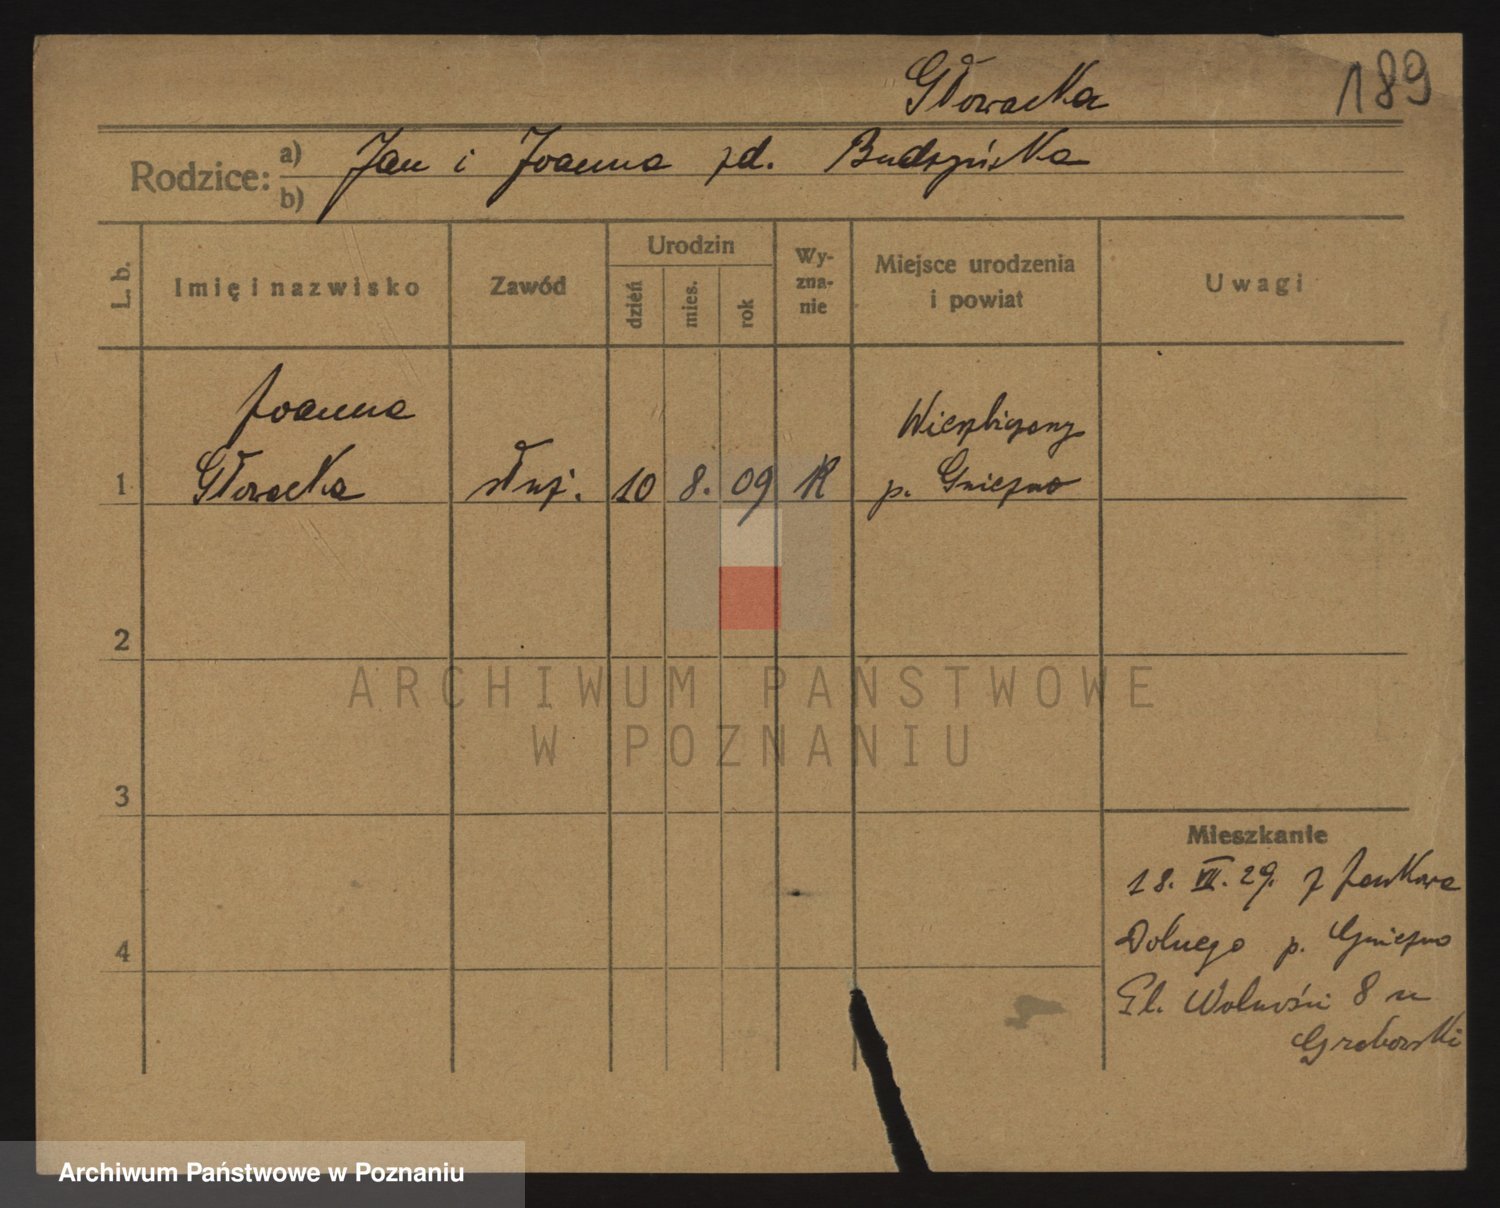 Głowacka
189
Rodzice:
a) Jan i Joanna zd. Budzyńska
b)
L. b.
Imię i nazwisko
Zawód
Urodzin
dzień
mies.
rok
Wy-
zna-
nie
Miejsce urodzenia
i powiat
Uwagi
Joanna
Wierzbiczany
1 Głowacka służ. 10 8. 09 K p. Gniezno
2
3
4
Mieszkanie
18. VII. 29. z Jankowa
Dolnego p. Gniezno
Pl. Wolności 8 u
Grabowski
ARCHIWUM PAŃSTWOWE
W POZNANIU
Archiwum Państwowe w Poznaniu